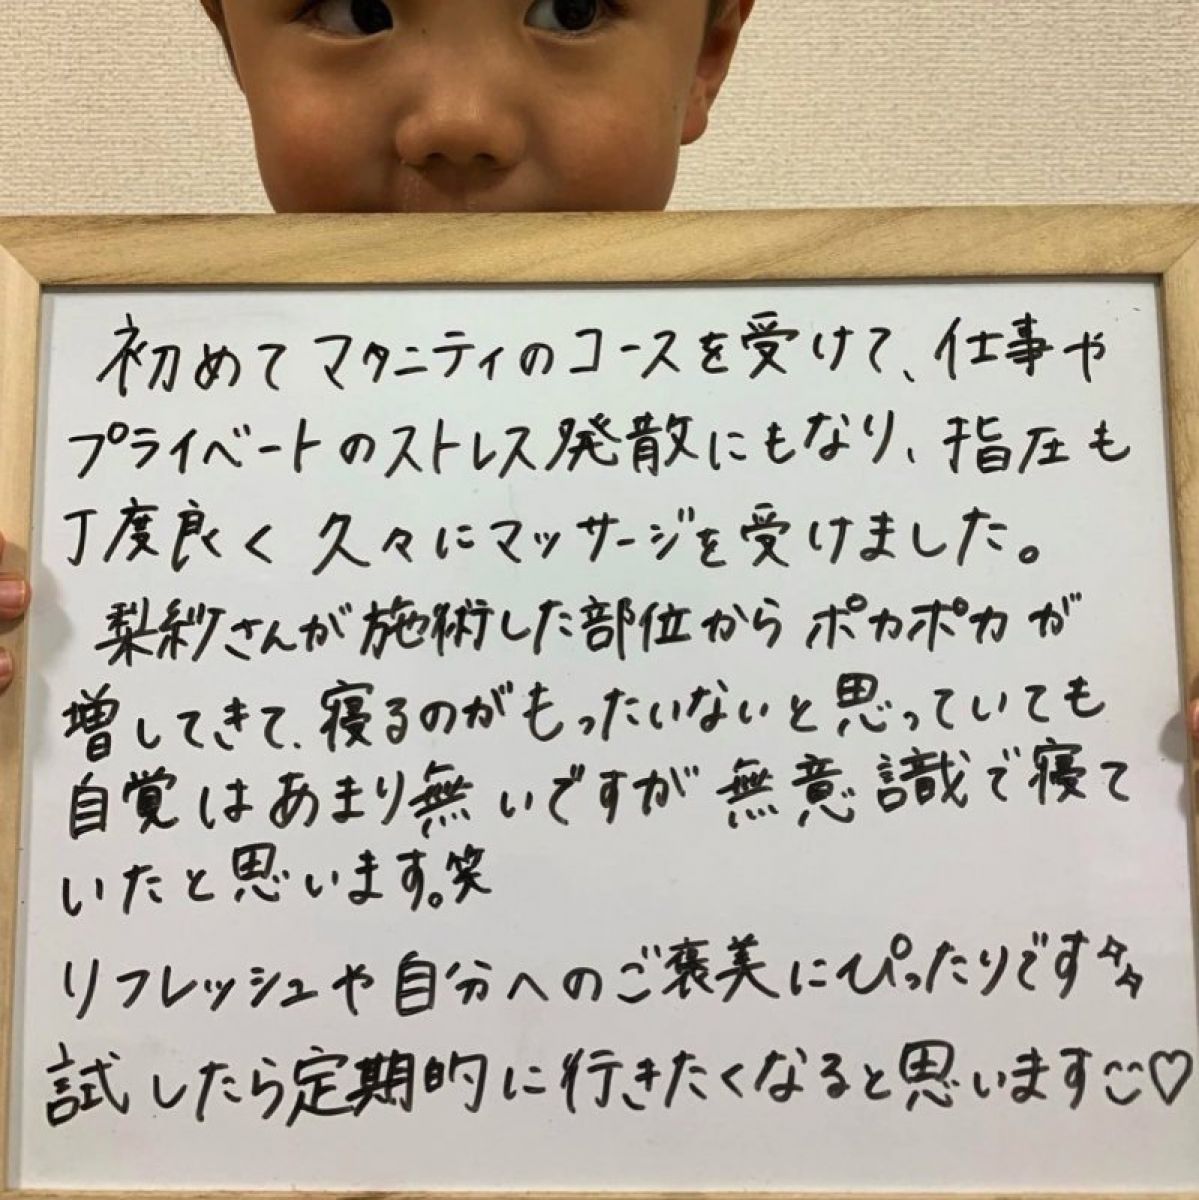 初めてマタニティのコースを受けて、仕事や
プライベートのストレス発散にもなり、指圧も
丁度良く久々にマッサージを受けました。
梨紗さんが施術した部位からポカポカが
増してきて、寝るのがもったいないと思っていても
自覚はあまり無いですが無意識で寝て
いたと思います。笑
リフレッシュや自分へのご褒美にぴったりです
試したら定期的に行きたくなると思います♡